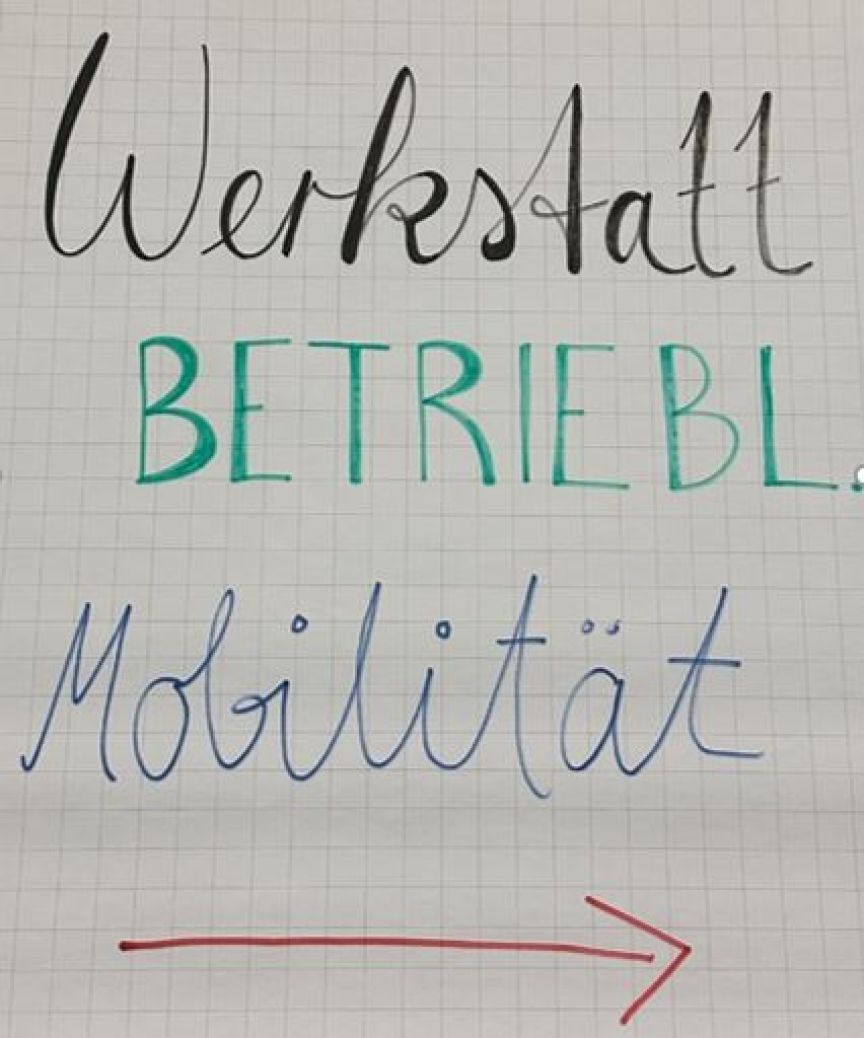 Werkstatt
BETRIEBL.
Mobilität